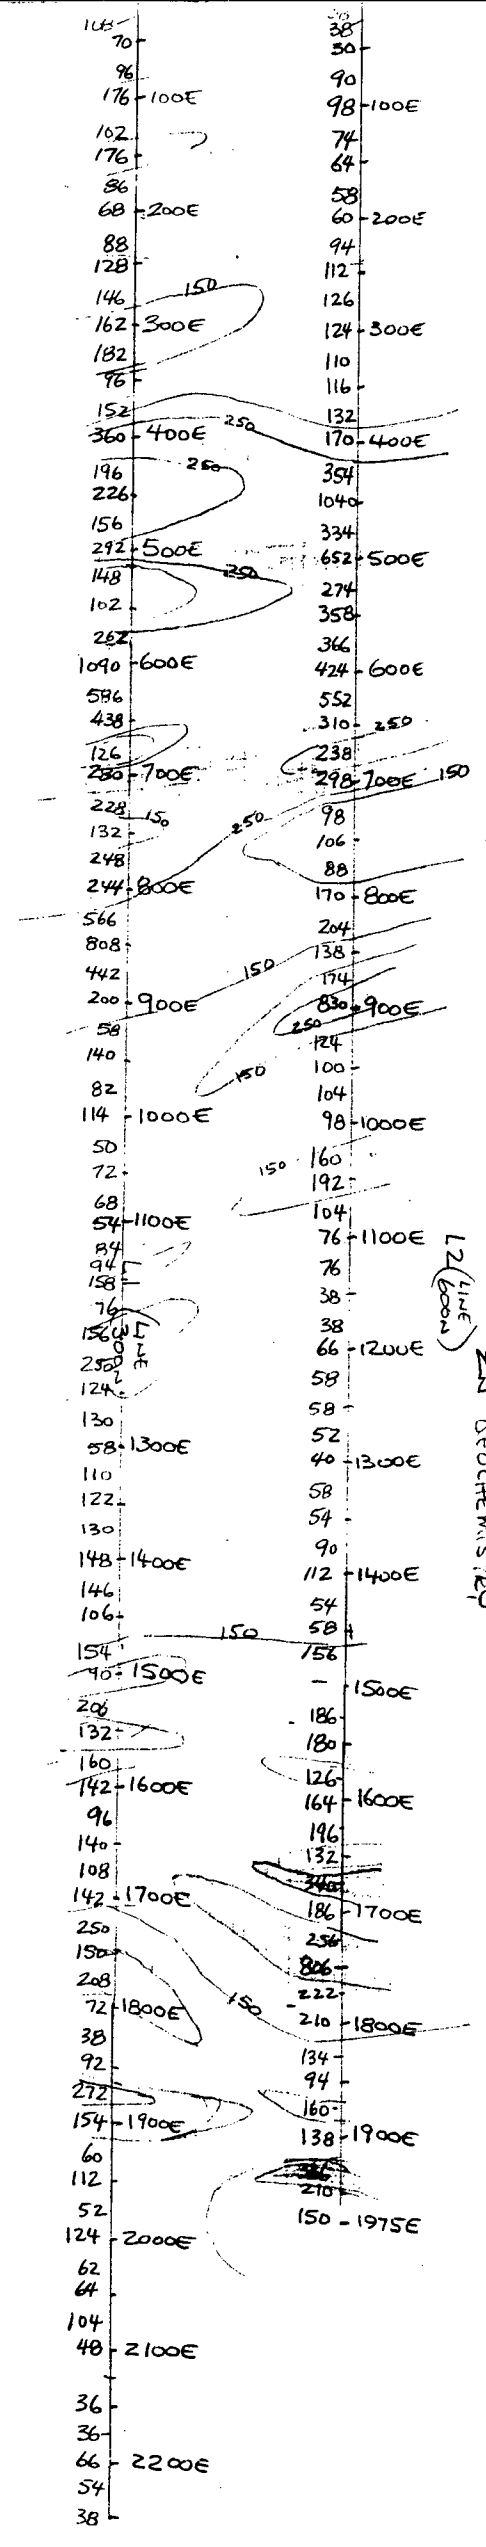 108
70
96
176 100E
102
176
86
68 200E
88
128
146
162 300E
182
96
152
360 400E
196
226
156
292 500E
148
102
262
1090 600E
586
438
126
280 700E
228
132
248
244 800E
566
808
442
200 900E
58
140
82
114 1000E
50
72
68
54 1100E
84
94
158
76
156
250
124
130
58 1300E
110
122
130
148 1400E
146
106
154
90 1500E
206
132
160
142 1600E
96
140
108
142 1700E
250
150
208
72 1800E
38
92
272
154 1900E
60
112
52
124 2000E
62
64
104
48 2100E
36
36
66 2200E
54
38
150
250
250
250
150
250
150
150
150
150
150
38
30
90
98 100E
74
64
58
60 200E
94
112
126
124 300E
110
116
132
170 400E
354
1040
334
652 500E
274
358
366
424 600E
552
310 250
238
298 700E 150
98
106
88
170 800E
204
138
174
830 900E
250
124
100
104
98 1000E
160
192
104
76 1100E
76
38
38
66 1200E
58
58
52
40 1300E
58
54
90
112 1400E
54
58
156
- 1500E
186
180
126
164 1600E
196
132
340
186 1700E
256
806
222
210 1800E
134
94
160
138 1900E
210
150 1975E
L2 (LINE 600N)
ZN GEOCHEMISTRY